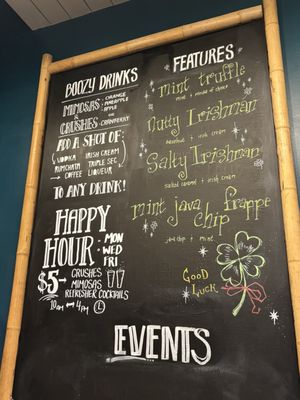 BOOZY DRINKS
MIMOSAS
&
CRUSHES
ORANGE
PINEAPPLE
APPLE
CRANBERRY
ADD A SHOT OF:
VODKA
RUMCHATA
COFFEE
IRISH CREAM
TRIPLE SEC
LIQUEUR
TO ANY DRINK!
HAPPY
HOUR
MON
WED
FRI
$5
CRUSHES
MIMOSAS
REFRESHER COCKTAILS
10AM 4PM
FEATURES
mint truffle
mint + mocha of choice
Nutty Irishman
hazelnut + irish cream
Salty Irishman
salted caramel + irish cream
mint java chip frappe
java chip + mint
GOOD
LUCK
EVENTS